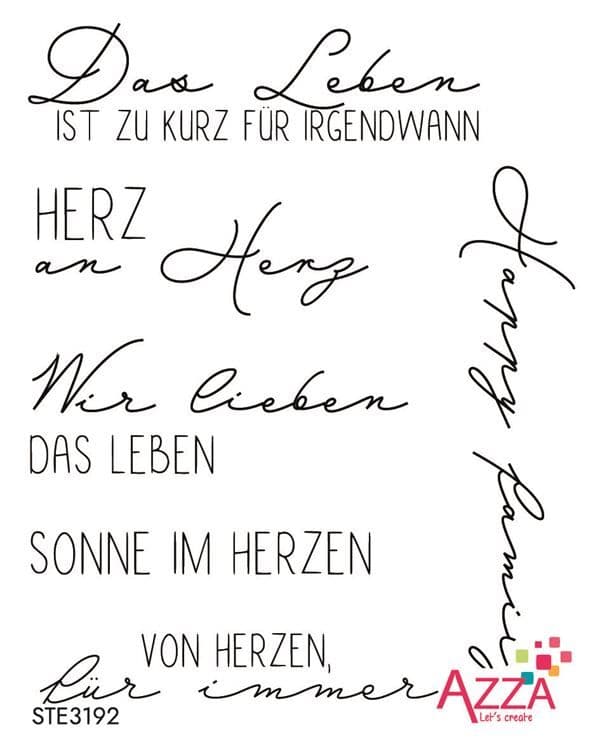 Das Leben
IST ZU KURZ FÜR IRGENDWANN
HERZ
an Herz
Happy family
Wir lieben
DAS LEBEN
SONNE IM HERZEN
VON HERZEN,
für immer
STE3192
AZZA
Let's create